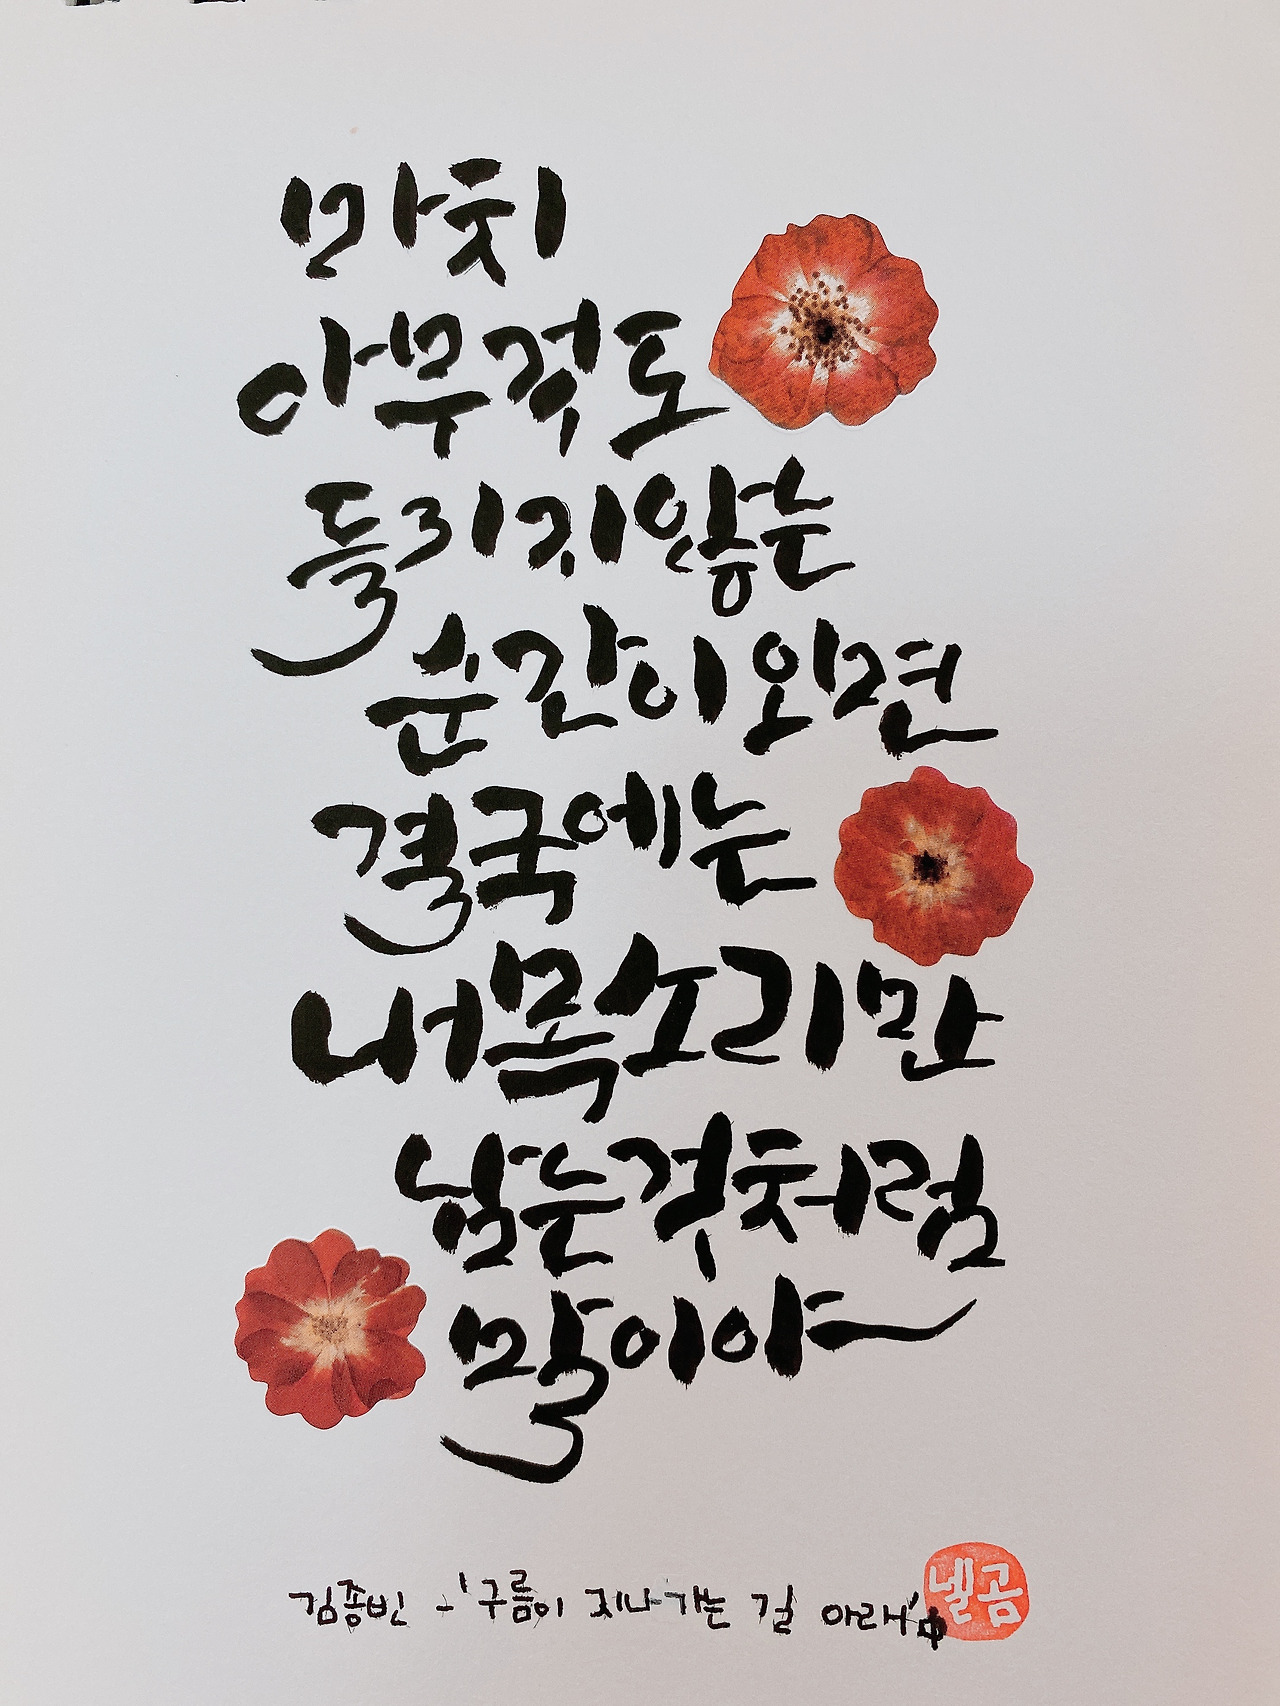 마치
아무것도
들리지않는
순간이오면
결국에는
내목소리만
남는것처럼
말이야
김종빈 - '구름이 지나가는 길 아래' 中
넬곰